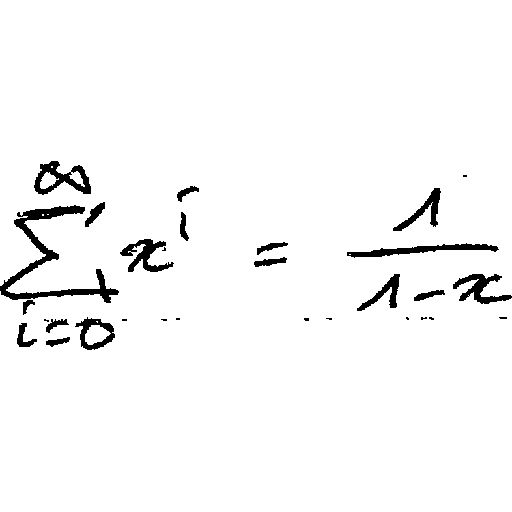 \sum_{i=0}^{\infty} x^i = \frac{1}{1-x}